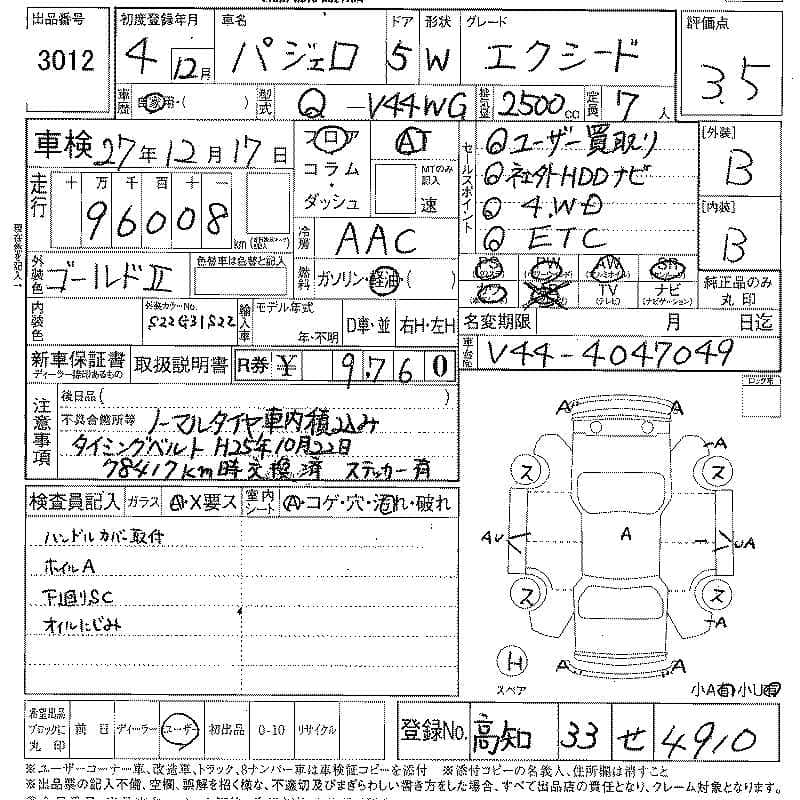 出品番号
3012
初度登録年月
4 12月
車名
パジェロ
ドア
5
形状
W
グレード
エクシード
評価点
3.5
車歴
自家用・( )
型式
Q-V44WG
排気量
2500cc
定員
7人
車検 27年12月17日
フロア
コラム・
ダッシュ
AT
MTのみ記入
速
セールスポイント
Qユーザー買取り
Q社外HDDナビ
Q4.WD
QETC
[外装]
B
[内装]
B
走行
十 万 千 百 十 一
96008
km
現在色を記入
冷房
AAC
外装色
ゴールドⅡ
色替車は色替と記入
燃料
ガソリン・軽油・( )
PS PW AW SR
TV ナビ
(テレビ) (ナビゲーション)
純正品のみ
丸印
内装色
外装カラーNo.
S22G31S22
輸入車
モデル年式
年・不明
D車・並
右H・左H
名変期限 月 日迄
新車保証書
ディーラー捺印あるもの
取扱説明書
R券 ¥ 9.760
車台No.
V44-4047049
注意事項
後日品( )
不具合箇所等
ノーマルタイヤ車内積込み
タイミングベルト H25年10月22日
78417km時交換済 ステッカー有
検査員記入
ガラス
A・X要ス
室内シート
A・コゲ・穴・汚れ・破れ
ハンドルカバー取付
ホイルA
下廻りSC
オイルにじみ
A A
A
ス ス
AU A UA
ス ス
A
H A A
スペア
小A有 小U有
希望出品
ブロックに
丸印
前日
ディーラー
ユーザー
初出品
0-10
リサイクル
登録No.
高知 33 せ 4910
※ユーザーコーナー車、改造車、トラック、8ナンバー車は車検証コピーを添付 ※添付コピーの名義人、住所欄は消すこと
※出品票の記入不備、空欄、誤解を招く様な、不適切及びまぎらわしい書き方をした場合、すべて出品店の責任となり、クレーム対象となります。